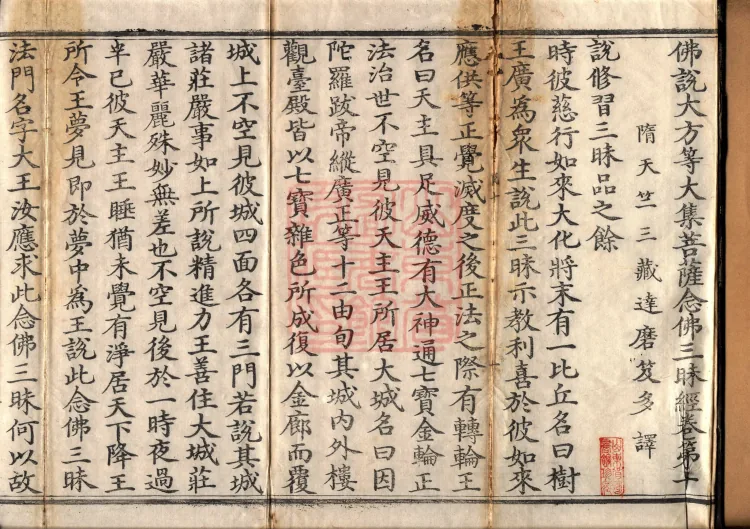 佛說大方等大集菩薩念佛三昧經卷第十
隋天竺三藏達磨笈多譯
說修習三昧品之餘
時彼慈行如來大化將末有一比丘名曰樹
王廣為眾生說此三昧示教利喜於彼如來
應供等正覺滅度之後正法之際有轉輪王
名曰天主具足威德有大神通七寶金輪正
法治世不空見彼天主王所居大城名曰因
陀羅跋帝縱廣正等十二由旬其城內外樓
觀臺殿皆以七寶雜色所成復以金廊而覆
城上不空見彼城四面各有三門若說其城
諸莊嚴事如上所說精進力王善住大城莊
嚴華麗殊妙無差也不空見後於一時夜過
半已彼天主王睡猶未覺有淨居天下降王
所令王夢見即於夢中為王說此念佛三昧
法門名字大王汝應求此念佛三昧何以故